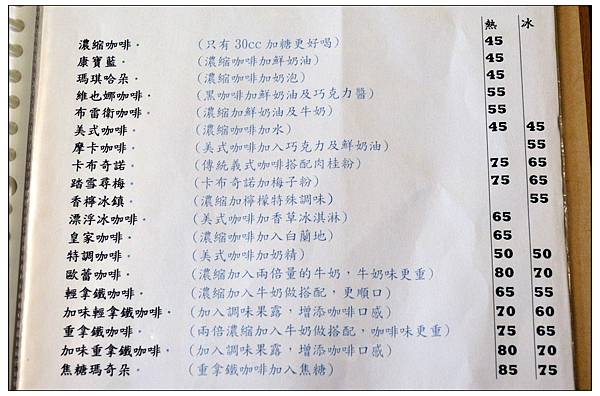 熱 冰
濃縮咖啡． (只有30cc加糖更好喝) 45
康寶藍． (濃縮咖啡加鮮奶油) 45
瑪琪哈朵． (濃縮咖啡加奶泡) 45
維也娜咖啡． (黑咖啡加鮮奶油及巧克力醬) 55
布雷衛咖啡． (濃縮加鮮奶油及牛奶) 55
美式咖啡． (濃縮咖啡加水) 45 45
摩卡咖啡． (美式咖啡加入巧克力及鮮奶油) 55
卡布奇諾． (傳統義式咖啡搭配肉桂粉) 75 65
踏雪尋梅． (卡布奇諾加梅子粉) 75 65
香檸冰鎮． (濃縮加檸檬特殊調味) 55
漂浮冰咖啡． (美式咖啡加香草冰淇淋) 65
皇家咖啡． (濃縮咖啡加入白蘭地) 65
特調咖啡． (美式咖啡加奶精) 50 50
歐蕾咖啡． (濃縮加入兩倍量的牛奶，牛奶味更重) 80 70
輕拿鐵咖啡． (濃縮加入牛奶做搭配，更順口) 65 55
加味輕拿鐵咖啡． (加入調味果露，增添咖啡口感) 70 60
重拿鐵咖啡． (兩倍濃縮加入牛奶做搭配，咖啡味更重) 75 65
加味重拿鐵咖啡． (加入調味果露，增添咖啡口感) 80 70
焦糖瑪奇朵． (重拿鐵咖啡加入焦糖) 85 75